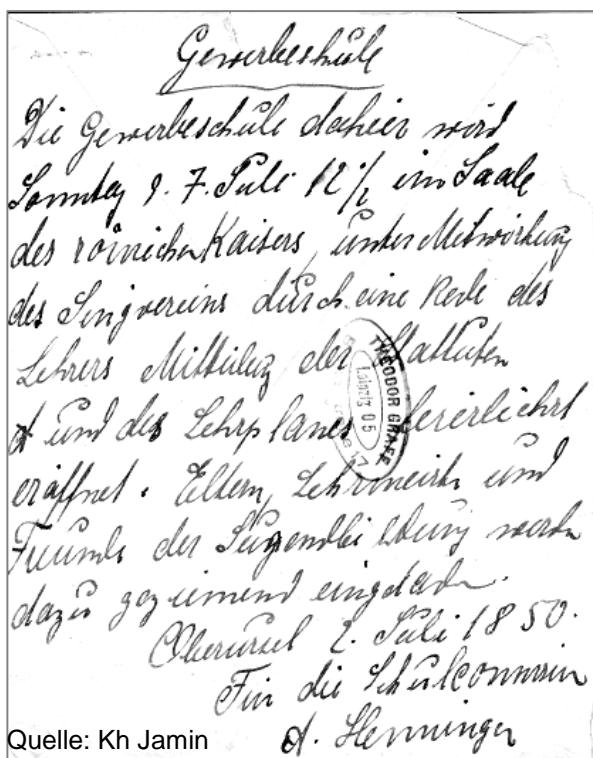 Gewerbeschule
Die Gewerbeschule dahier wird
Sonntag d. 7. Juli 12 1/2 im Saale
des römischen Kaisers, unter Mitwirkung
des Singvereins durch eine Rede des
Lehrers Mitteilung der Statuten
und des Lehrplanes feierlichst
eröffnet. Eltern, Lehrmeister und
Freunde der Jugendbildung werden
dazu geziemend eingeladen.
Oberursel 2. Juli 1850.
Für die Schulcommission
A. Henninger
THEODOR GRÄFE
Leipzig O 5
Quelle: Kh Jamin